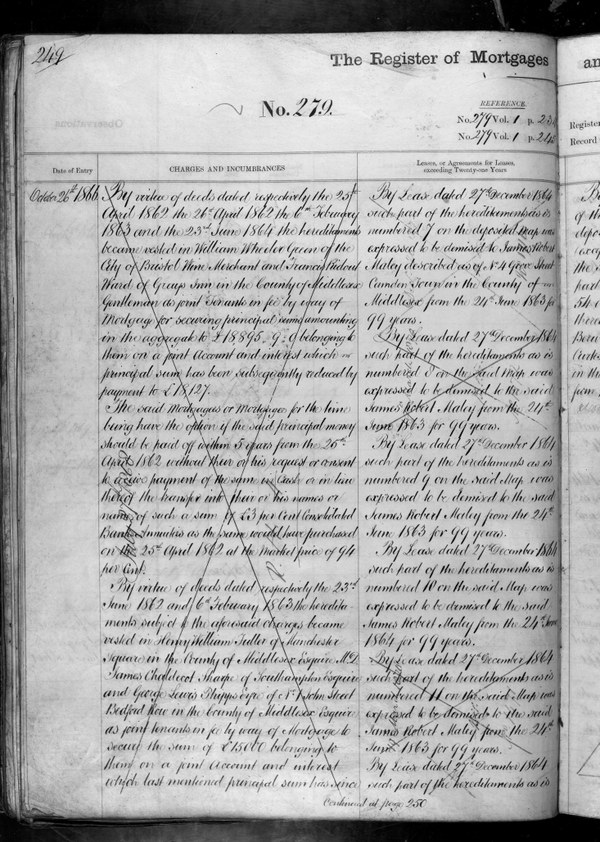 249
The Register of Mortgages
an
No. 279.
REFERENCE.
No. 279 Vol. 1 p.
No. 279 Vol. 1 p.
Register
Record
Date of Entry
CHARGES AND INCUMBRANCES
Leases, or Agreements for Leases, exceeding Twenty-one Years
October 26th 1866.
By virtue of deeds dated respectively the 25th
April 1862 the 26th April 1862 the 6th February
1863 and the 23rd June 1864 the hereditaments
became vested in William Wheeler Green of the
City of Bristol Wine Merchant and Francis
Ward of Grays Inn in the County of Middlesex
Gentleman as joint Tenants in fee by way of
Mortgage for securing principal sums amounting
in the aggregate to £18895. 9. 0 belonging to
them on a joint Account and interest which
principal sum has been subsequently reduced by
payment to £18,127.
The said Mortgagees or Mortgagee for the time
being have the option if the said principal money
should be paid off within 5 years from the 25th
April 1862 without their or his request or consent
to require payment of the same in Cash or in lieu
thereof the transfer into their or his names or
name of such a sum of £3 per Cent Consolidated
Bank Annuities as the same would have purchased
on the 25th April 1862 at the market price of 94
per Cent.
By virtue of deeds dated respectively the 23rd
June 1862 and 6th February 1863 the heredita-
ments subject to the aforesaid charges became
vested in Henry William of Manchester
Square in the County of Middlesex Esquire
James Sharpe of Southampton Esquire
and George Lewis Phipps Eyre of No 1 John Street
Bedford Row in the County of Middlesex Esquire
as joint tenants in fee by way of Mortgage to
secure the sum of £15000 belonging to
them on a joint Account and interest
which last mentioned principal sum has since
By Lease dated 27th December 1864
such part of the hereditaments as is
numbered 7 on the deposited map was
expressed to be demised to James Robert
Maley described as of No 4 Street
Camden Town in the County of
Middlesex from the 24th June 1863 for
99 years.
By Lease dated 27th December 1864
such part of the hereditaments as is
numbered 8 on the said map was
expressed to be demised to the said
James Robert Maley from the 24th
June 1863 for 99 years.
By Lease dated 27th December 1864
such part of the hereditaments as is
numbered 9 on the said Map was
expressed to be demised to the said
James Robert Maley from the 24th
June 1863 for 99 years.
By Lease dated 27th December 1864
such part of the hereditaments as is
numbered 10 on the said Map was
expressed to be demised to the said
James Robert Maley from the 24th June
1864 for 99 years.
By Lease dated 27th December 1864
such part of the hereditaments as is
numbered 11 on the said Map was
expressed to be demised to the said
James Robert Maley from the 24th
June 1863 for 99 years.
By Lease dated 27th December 1864
such part of the hereditaments as is
Continued at page 250